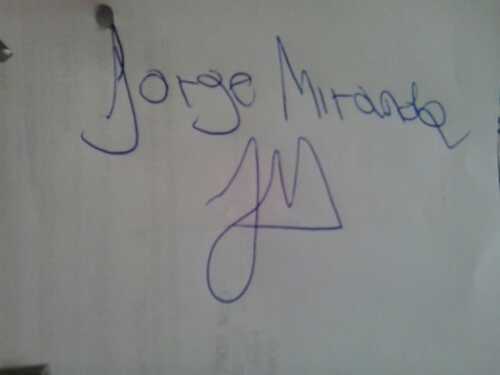 Jorge Miranda
JM